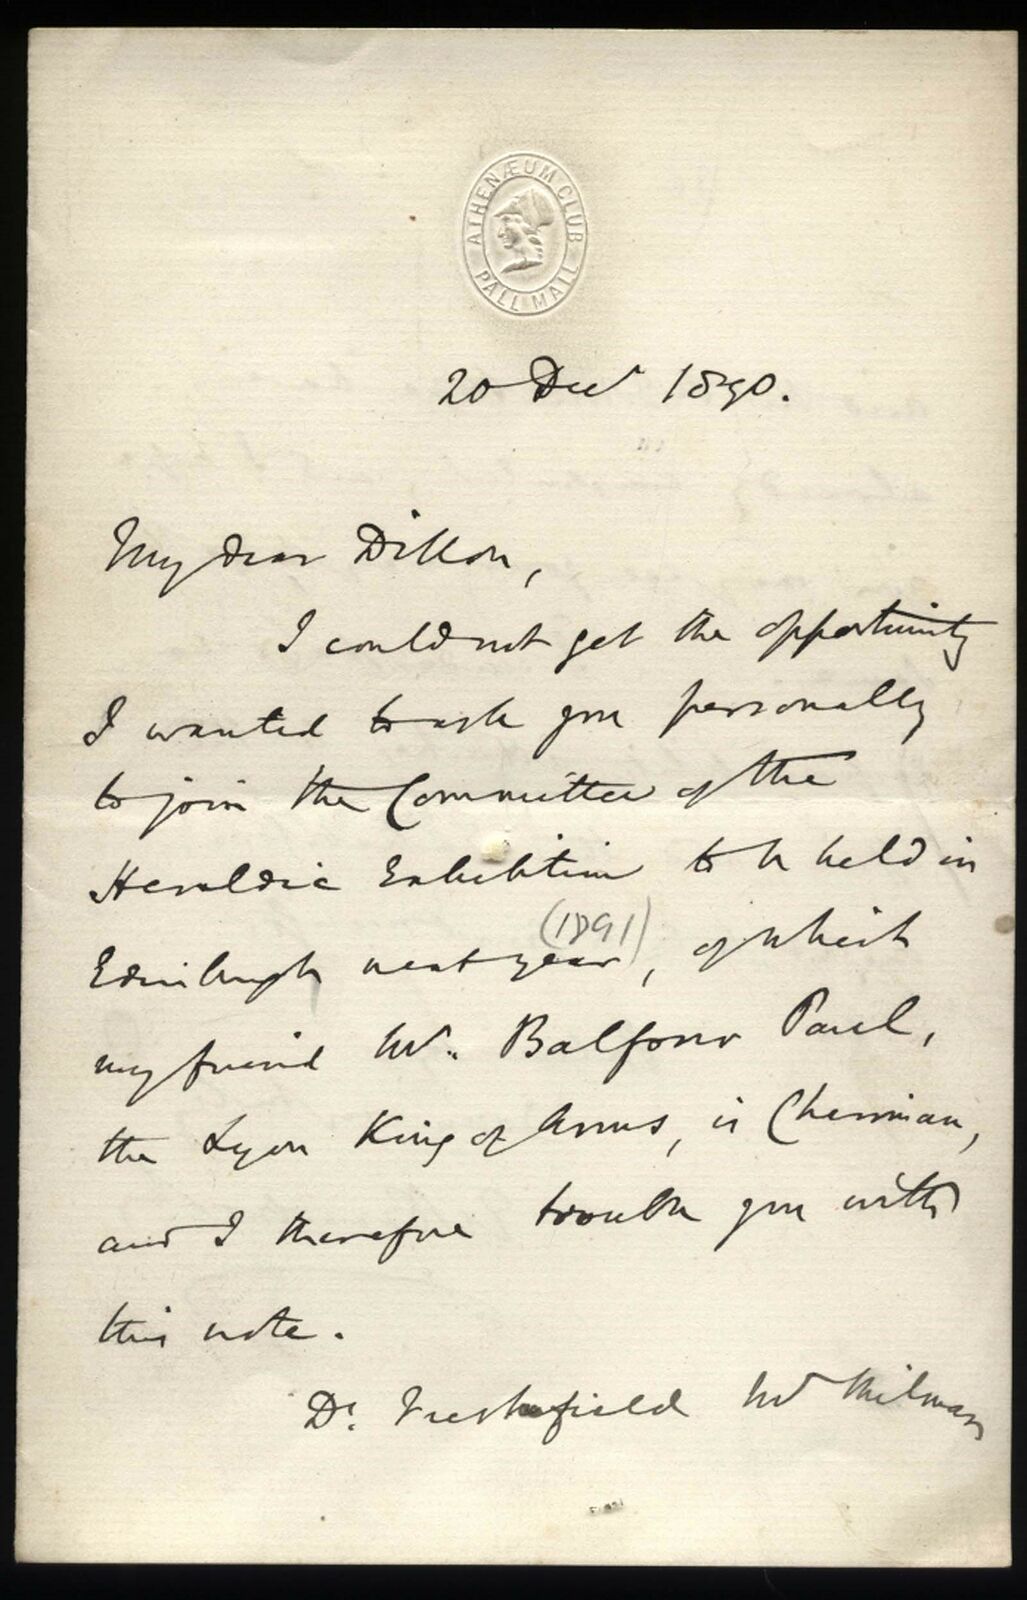 ATHENÆUM CLUB
PALL MALL
20 Decr 1890.
My dear Dillon,
I could not get the opportunity
I wanted to ask you personally
to join the Committee of the
Heraldic Exhibition to be held in
(1891)
Edinburgh next year, of which
my friend Mr. Balfour Paul,
the Lyon King of Arms, is Chairman,
and I therefore trouble you with
this note.
Dr. Freshfield Mr Milman